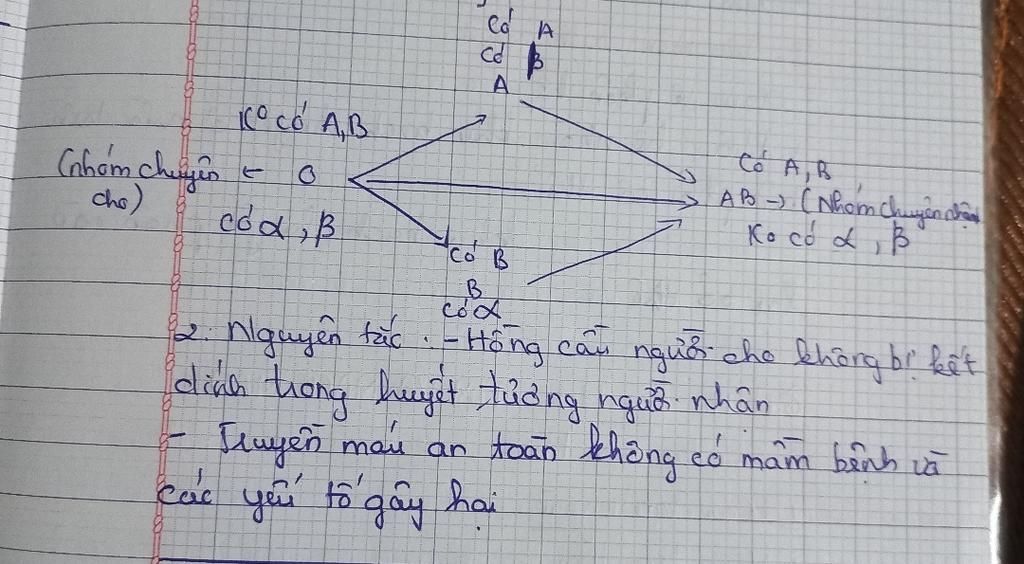 Có A
Có β
A
Ko có A,B
(nhóm chuyên ← O
cho)
Có α, β
Có B
B
Có α
Có A, B
AB → (Nhóm chuyên nhận
Ko có α, β
2. Nguyên tắc. - Hồng cầu người cho không bị kết
dính trong huyết tương người nhận
- Truyền máu an toàn không có mầm bệnh và
các yếu tố gây hại